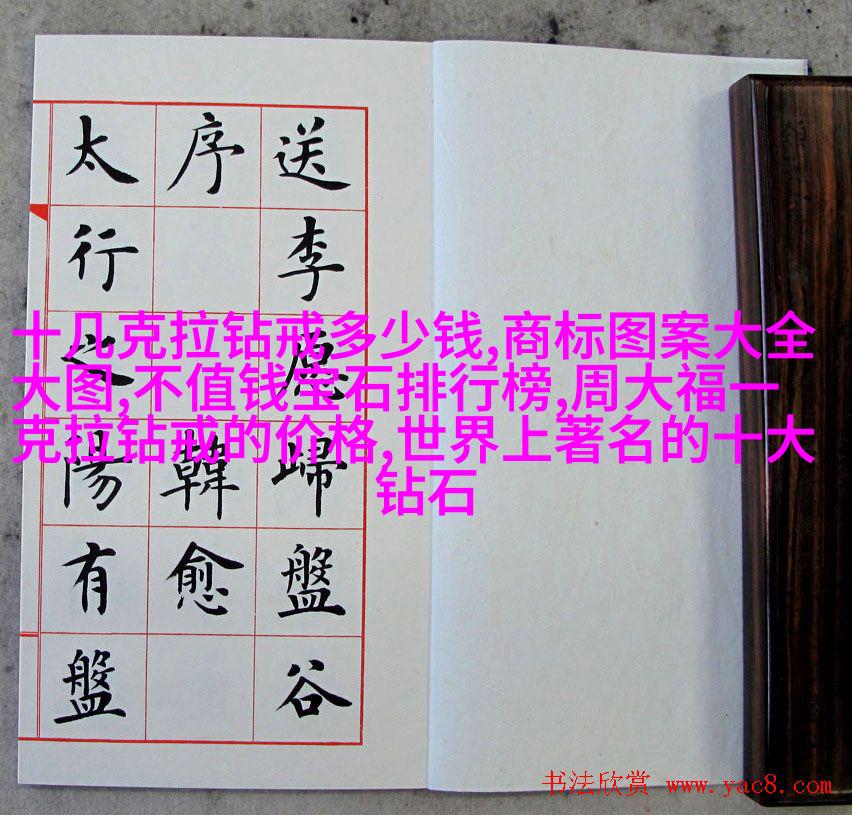 送李愿歸盤谷
序 韓愈
太行之陽有盤
十几克拉钻戒多少钱,商标图案大全
大图,不值钱宝石排行榜,周大福一
克拉钻戒的价格,世界上著名的十大
钻石
书法欣赏 www.yac8.com